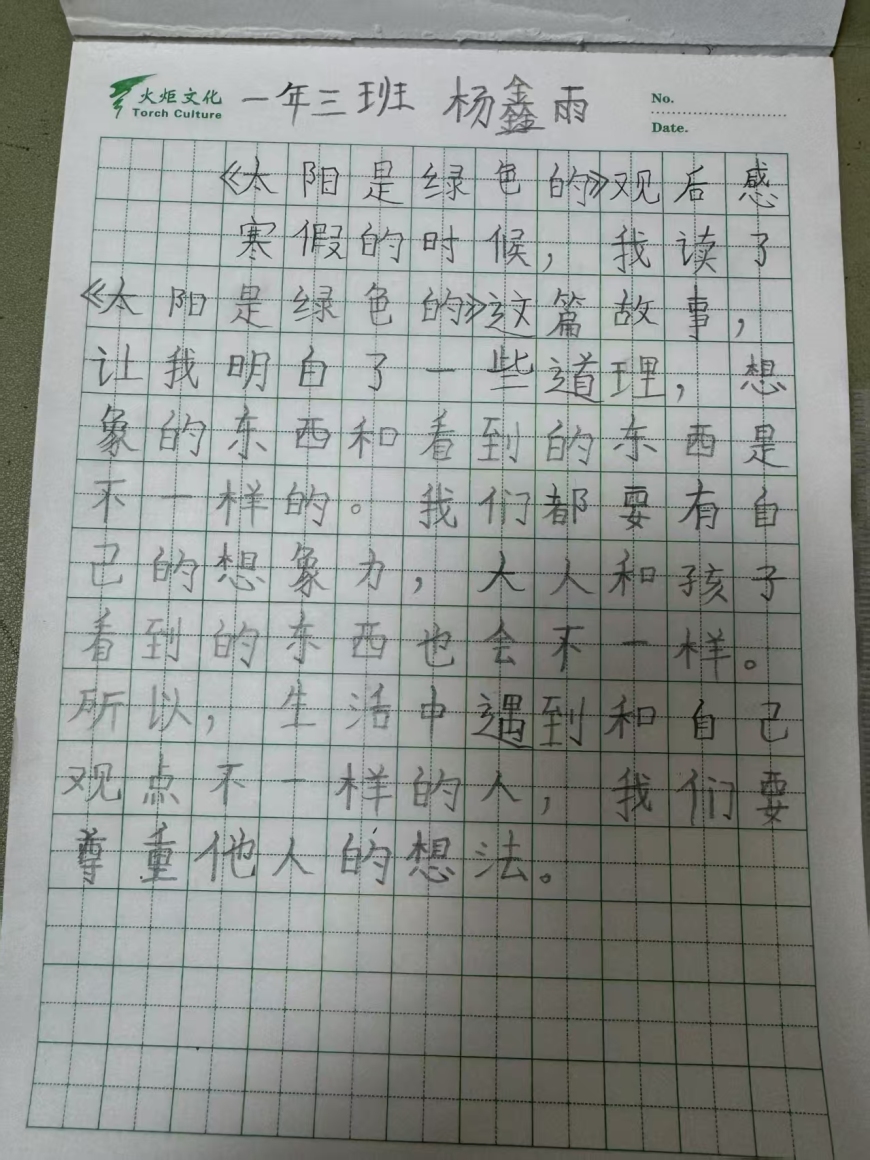 火炬文化
Torch Culture
一年三班 杨鑫雨
No.
Date.
《太阳是绿色的》观后感
寒假的时候，我读了
《太阳是绿色的》这篇故事，
让我明白了一些道理，想
象的东西和看到的东西是
不一样的。我们都要有自
己的想象力，大人和孩子
看到的东西也会不一样。
所以，生活中遇到和自己
观点不一样的人，我们要
尊重他人的想法。